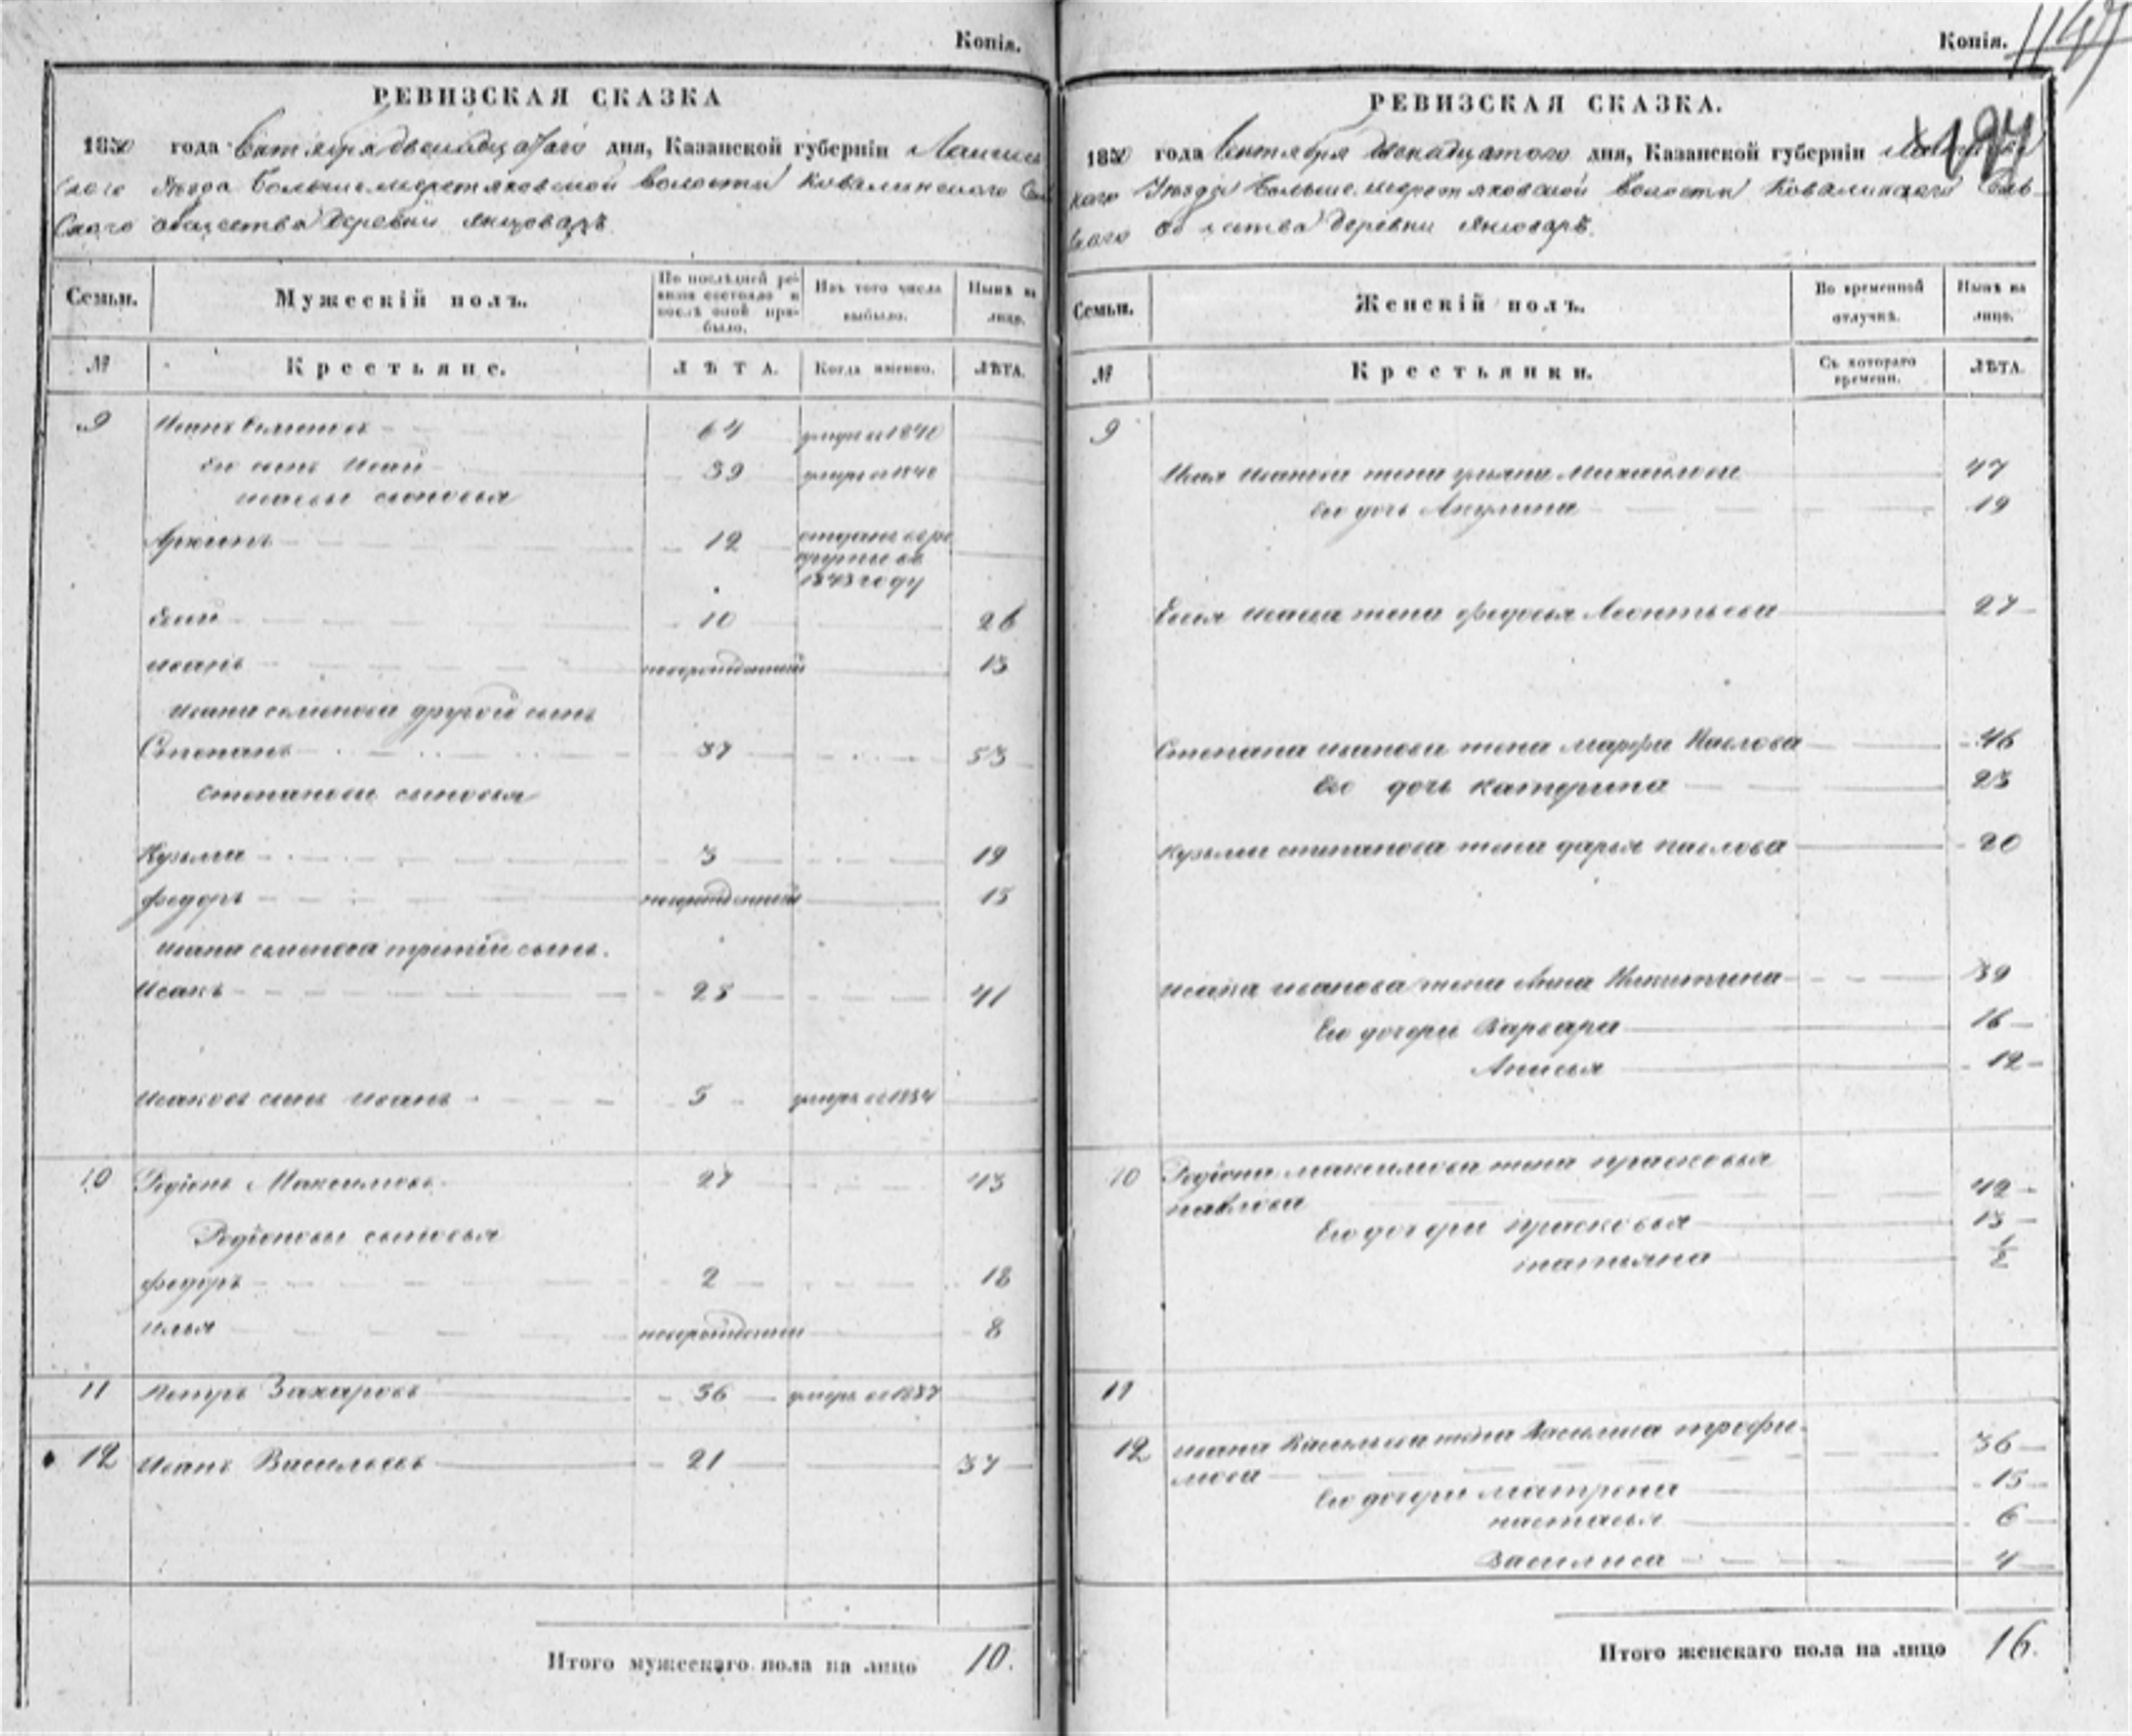 Копія.
РЕВИЗСКАЯ СКАЗКА
1850 года Сентября двенадцатаго дня, Казанской губерніи Лаишев
скаго Уѣзда Больше.. волости Ковалинскаго Сель
Скаго общества деревни Янцоваръ
Семьи.
Мужескій полъ.
По послѣдней ре-
визіи состояло и
послѣ оной при-
было.
Изъ того числа
выбыло.
Нынѣ на
лицо.
№
Крестьяне.
ЛѢТА.
Когда именно.
ЛѢТА.
9 Иванъ Семеновъ 64 умеръ въ 1840
Его сынъ Исай 39 умеръ въ 1840
исаевы сыновья
12 отданъ въ ре
круты въ
1843 году
Елий 10 26
иванъ новорожденный 13
ивана семенова другой сынъ
Степанъ 37 53
степановы сыновья
Кузьма 3 19
федоръ новорожденный 15
ивана семенова третій сынъ.
Исакъ 25 41
исаковъ сынъ иванъ 5 умеръ въ 1834
10 Родіонъ Максимовъ 27 43
Родіоновы сыновья
федоръ 2 18
илья новорожденный 8
11 Петръ Захаровъ 56 умеръ въ 1837
12 Иванъ Васильевъ 21 37
Итого мужескаго пола на лицо 10.
Копія.
1147
197
РЕВИЗСКАЯ СКАЗКА.
1850 года Сентября двенадцатаго дня, Казанской губерніи
скаго Уѣзда Больше. волости Ковалинскаго Сель
скаго общества деревни Янцоваръ.
Семьи.
Женскій полъ.
Во временной
отлучкѣ.
Нынѣ на
лицо.
№
Крестьянки.
Съ котораго
времени.
ЛѢТА.
9
Исая иванова жена ульяна Михайлова 47
Его дочь Акулина 19
исаева жена федосья Леонтьева 27
Степана иванова жена марфа Павлова 46
Его дочь катерина 23
кузьмы степанова жена дарья павлова 20
исака иванова жена Анна Никитина 39
Его дочери Варвара 16
Анисья 12
10 Родіона максимова жена прасковья
павлова 42
Его дочери прасковья 13
татьяна ½
11
12 ивана Васильева жена Василиса трофи-
мова 36
Его дочери матрена 15
настасья 6
Василиса 4
Итого женскаго пола на лицо 16.